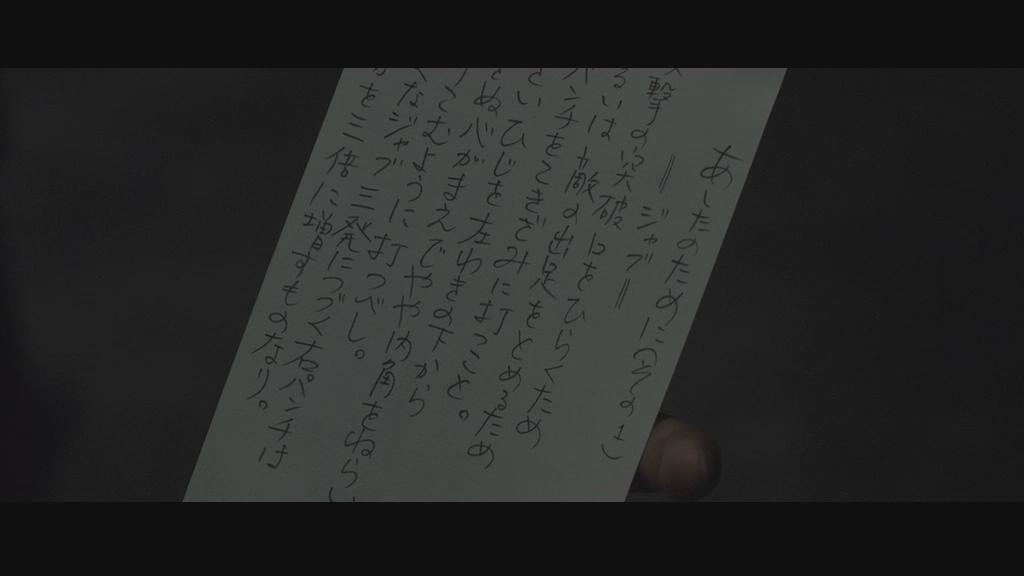 あしたのために(その1)
＝ジャブ＝
撃の突破口をひらくため
るいは敵の出足をとめるため
パンチをこきざみに打つこと。
いひじを左わきの下から
さぬ心がまえでやや内角をねらい
りこむように打つべし。
くなジャブ三発につづく右パンチは
を三倍に増すものなり。